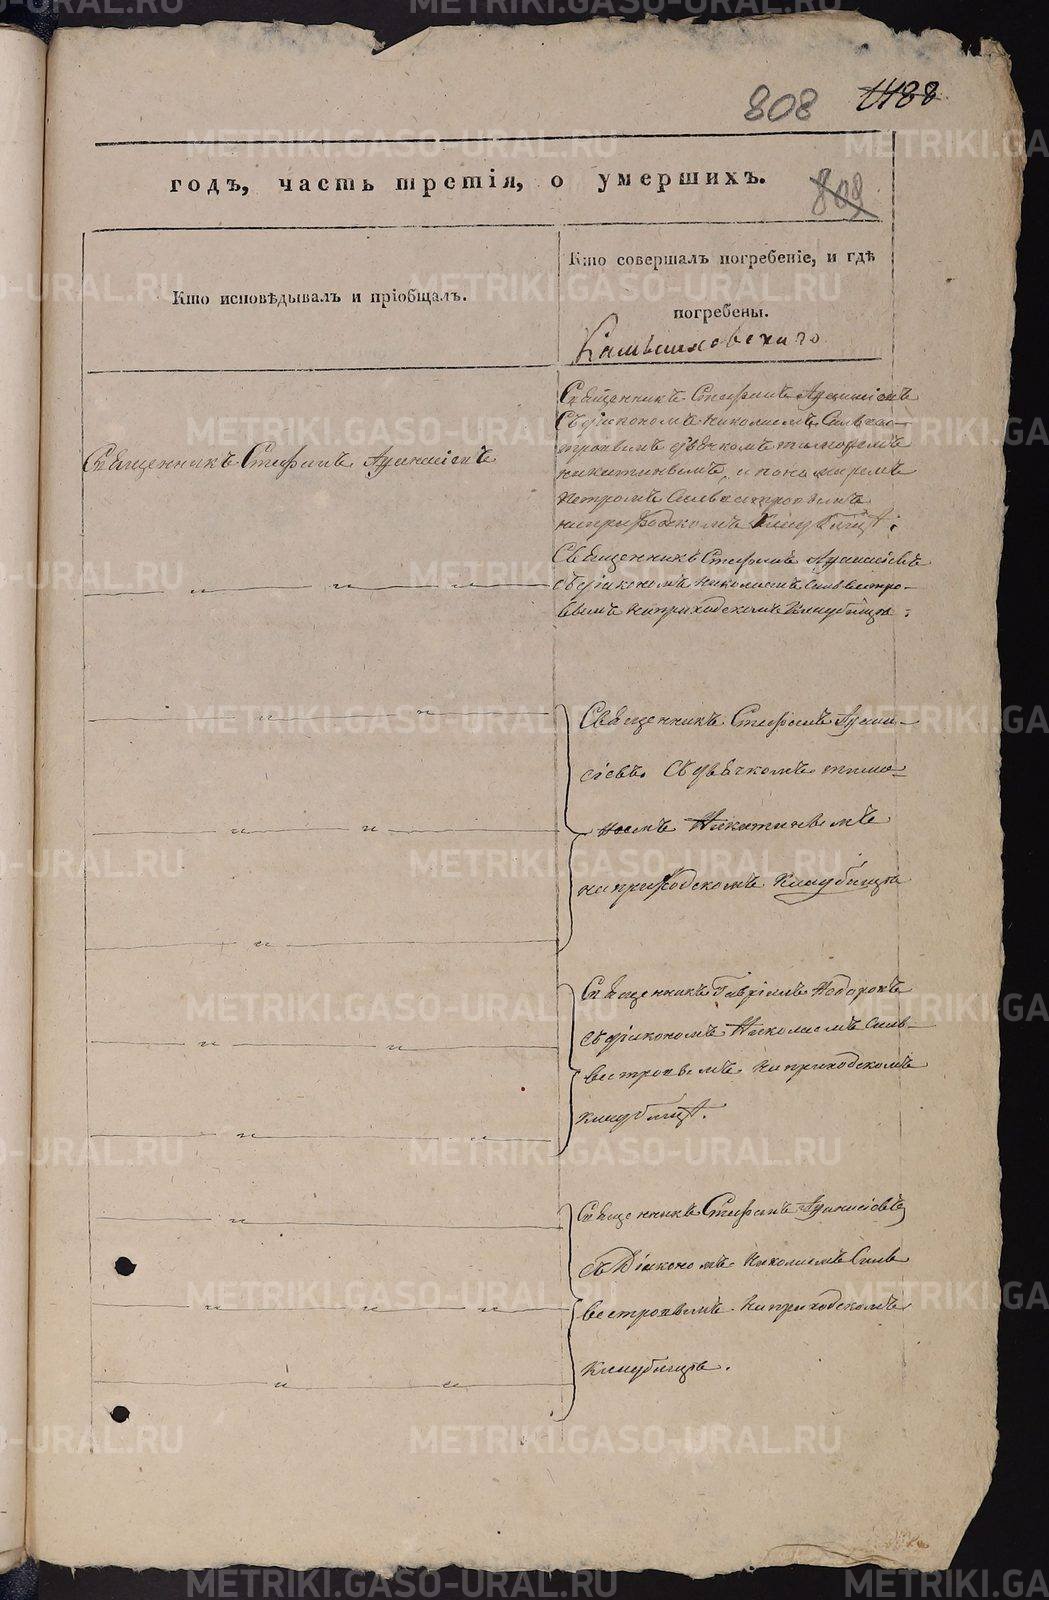 808 1188
годъ, часть третія, о умершихъ.
809
Кто исповѣдывалъ и пріобщалъ.
Кто совершалъ погребеніе, и гдѣ
погребены.
Камышловскаго
Священникъ Стефанъ
Священникъ Стефанъ
Съ діакономъ Николаемъ Сильвес-
тровымъ дьячкомъ Тимофеемъ
Никитинымъ, и пономаремъ
Петромъ Сильвестровымъ
на приходскомъ кладбищѣ;
Священникъ Стефанъ
съ діакономъ Николаемъ Сильвестро-
вымъ на приходскомъ кладбищѣ;
Священникъ Стефанъ
съ дьячкомъ Тимо-
Никитинымъ
на приходскомъ кладбищѣ
Священникъ Гавріилъ
съ діакономъ Николаемъ Силь-
вестровымъ на приходскомъ
кладбищѣ.
Священникъ Стефанъ
съ Діакономъ Николаемъ Силь
вестровымъ на приходскомъ
кладбищѣ.
METRIKI.GASO-URAL.RU